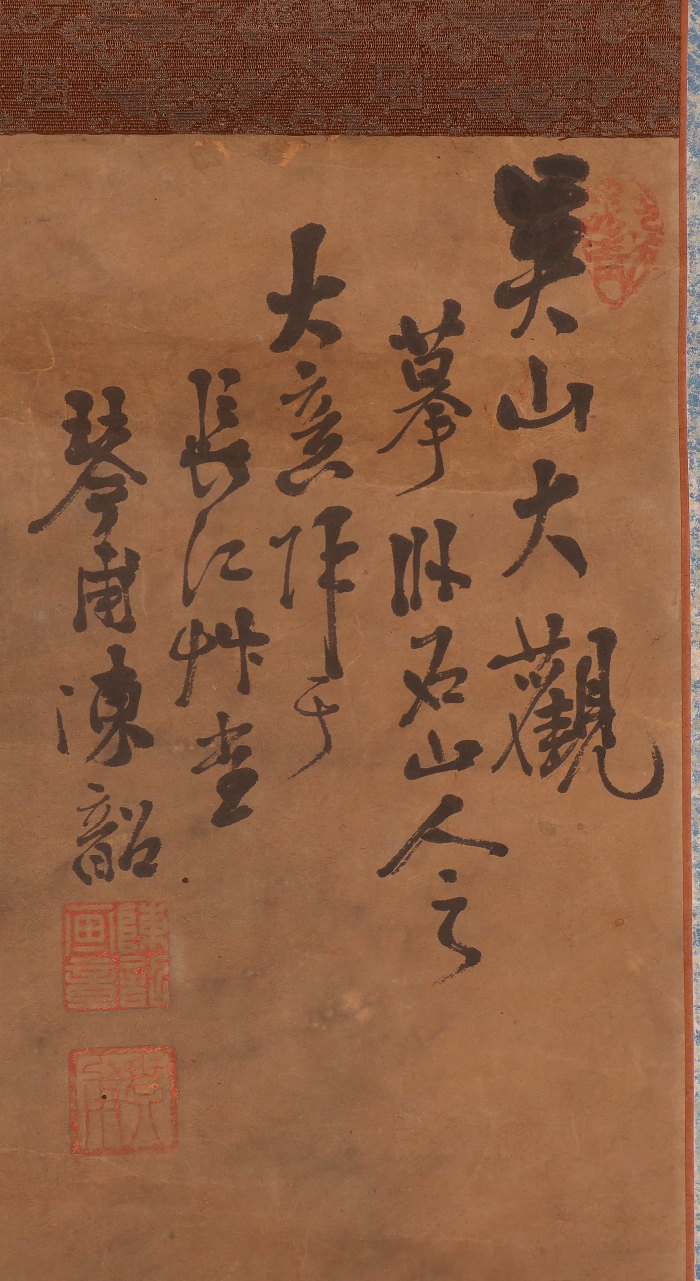 吴山大觀
摹臥石山人之
大意作于
長江艸堂
琴甫陳韶